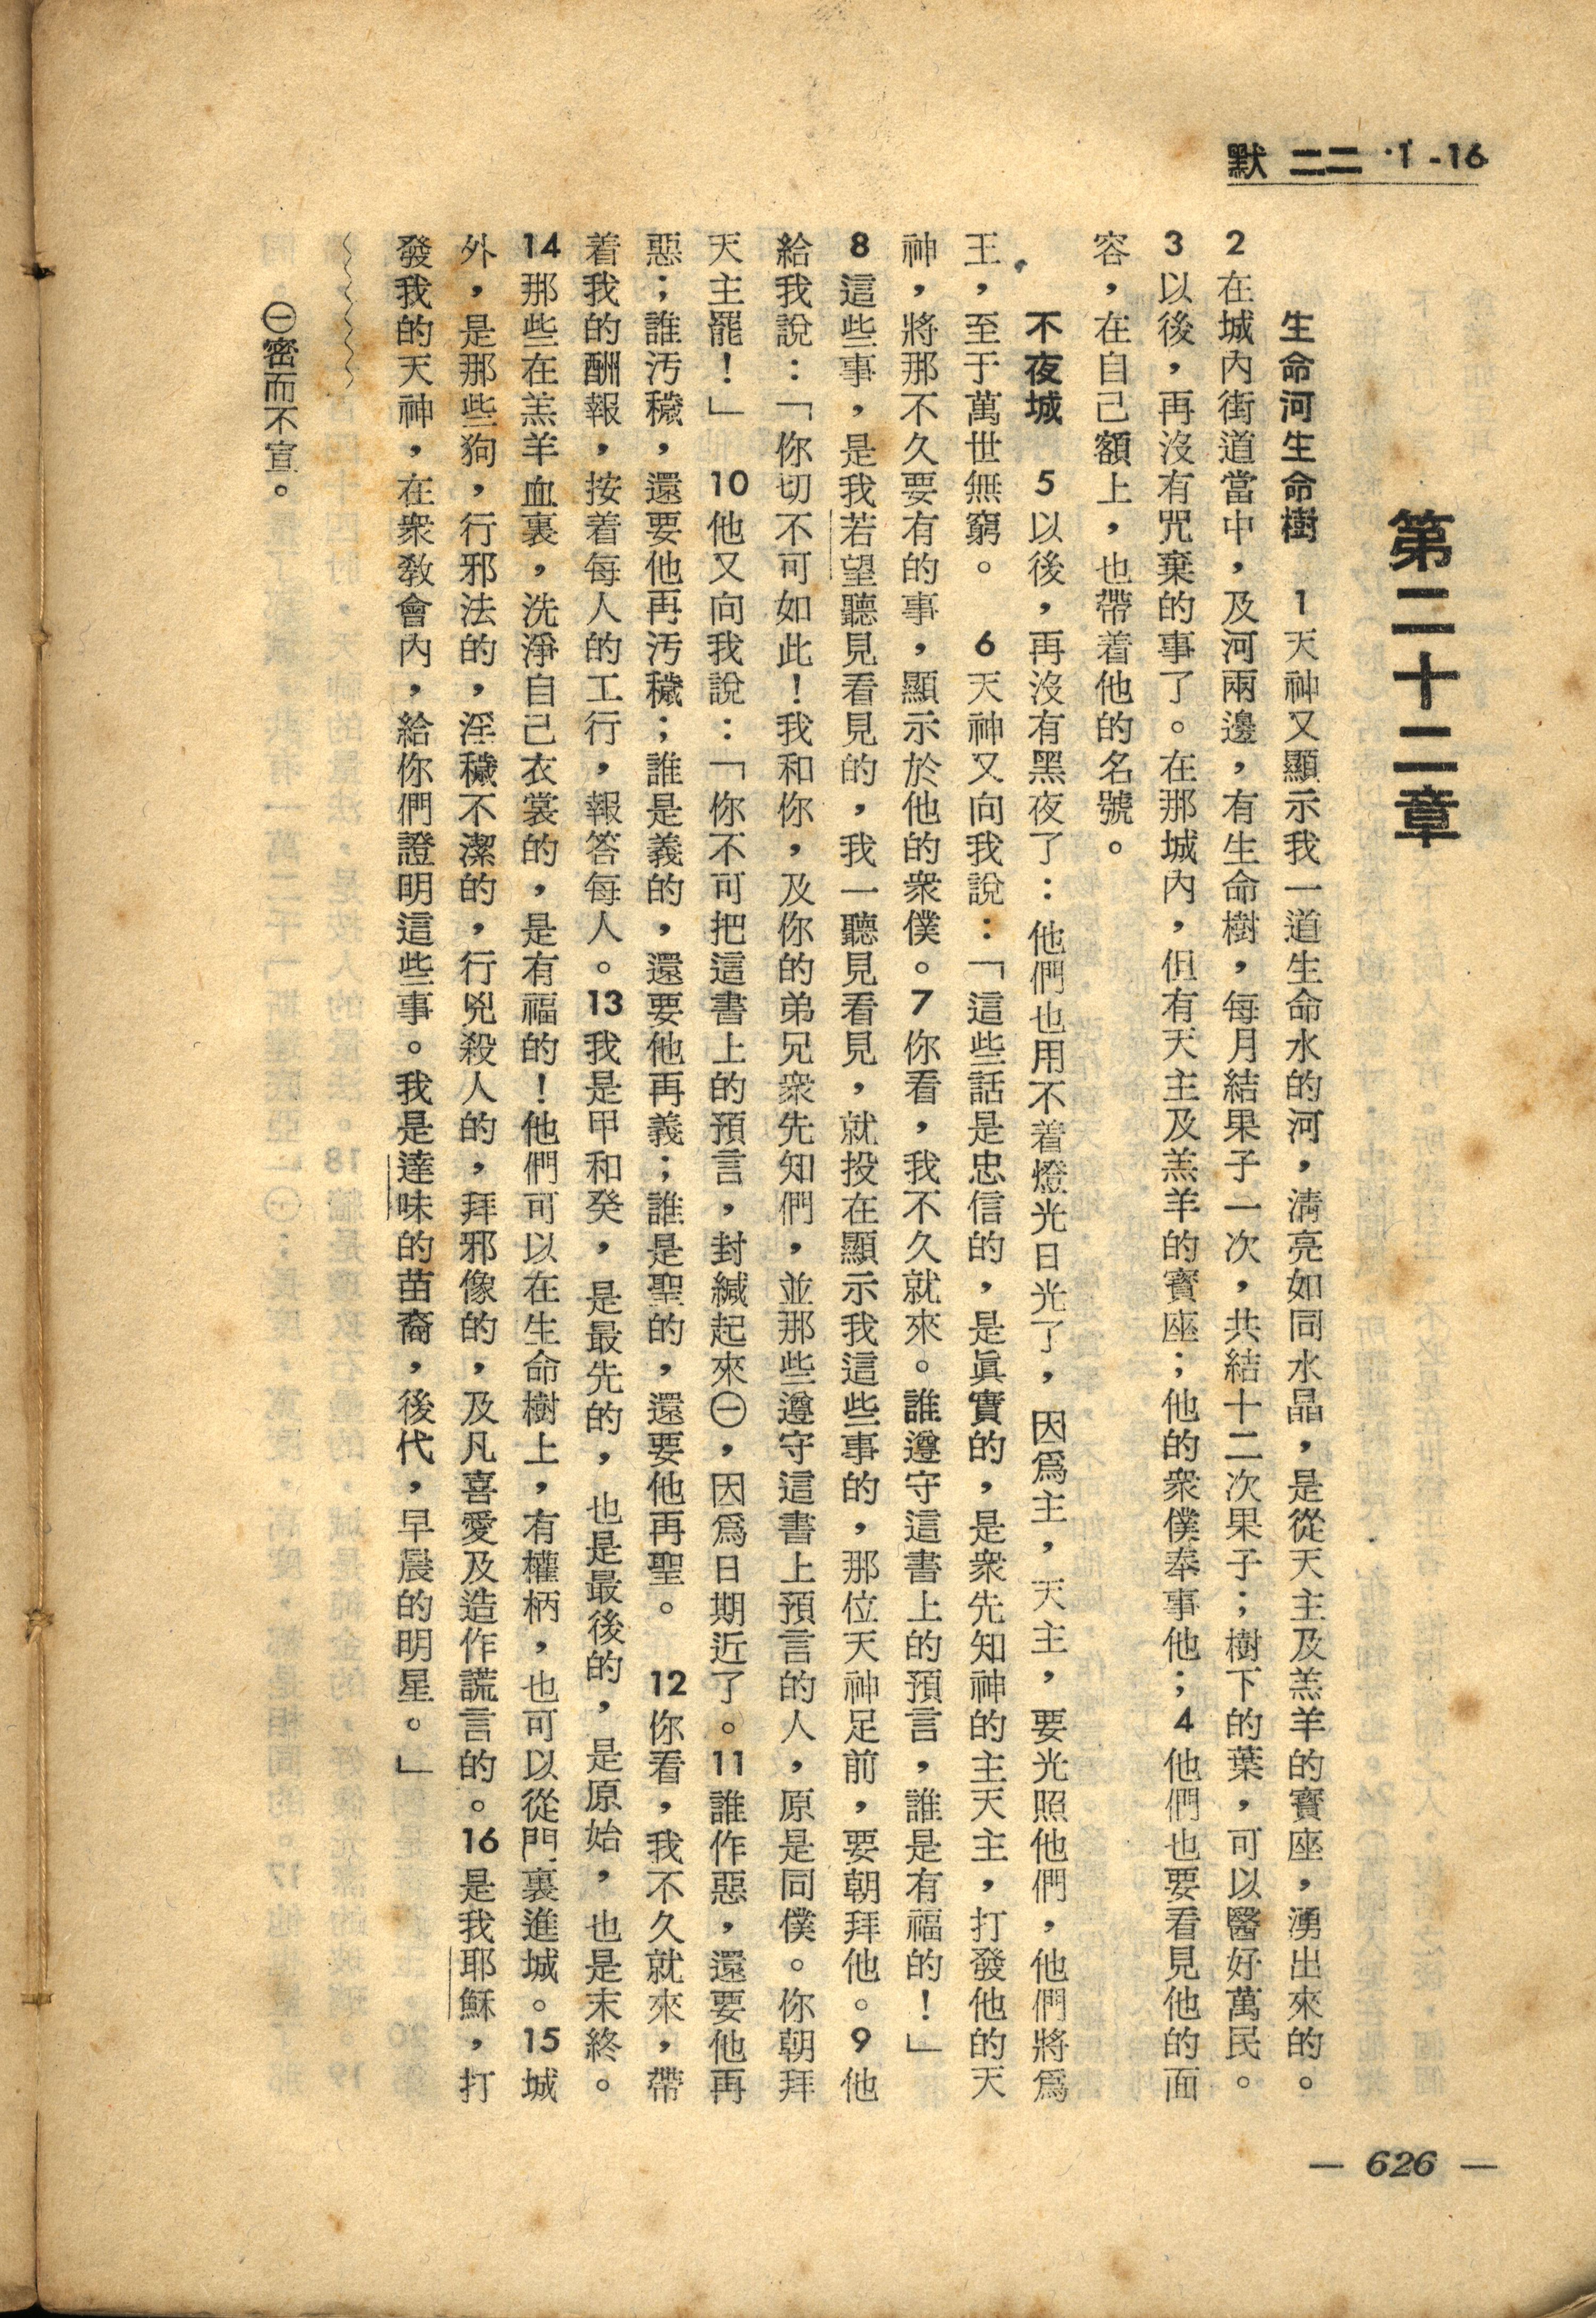 默 二二 ·1-16
第二十二章
生命河生命樹 1天神又顯示我一道生命水的河，淸亮如同水晶，是從天主及羔羊的寶座，湧出來的。
2在城內街道當中，及河兩邊，有生命樹，每月結果子一次，共結十二次果子；樹下的葉，可以醫好萬民。
3以後，再沒有咒棄的事了。在那城內，但有天主及羔羊的寶座；他的衆僕奉事他；4他們也要看見他的面
容，在自己額上，也帶着他的名號。
不夜城 5以後，再沒有黑夜了：他們也用不着燈光日光了，因爲主，天主，要光照他們，他們將爲
王，至于萬世無窮。 6天神又向我說：「這些話是忠信的，是眞實的，是衆先知神的主天主，打發他的天
神，將那不久要有的事，顯示於他的衆僕。7你看，我不久就來。誰遵守這書上的預言，誰是有福的！」
8這些事，是我若望聽見看見的，我一聽見看見，就投在顯示我這些事的，那位天神足前，要朝拜他。9他
給我說：「你切不可如此！我和你，及你的弟兄衆先知們，並那些遵守這書上預言的人，原是同僕。你朝拜
天主罷！」 10他又向我說：「你不可把這書上的預言，封緘起來㊀，因爲日期近了。11誰作惡，還要他再
惡；誰汚穢，還要他再汚穢；誰是義的，還要他再義；誰是聖的，還要他再聖。 12你看，我不久就來，帶
着我的酬報，按着每人的工行，報答每人。13我是甲和癸，是最先的，也是最後的，是原始，也是末終。
14那些在羔羊血裏，洗淨自己衣裳的，是有福的！他們可以在生命樹上，有權柄，也可以從門裏進城。15城
外，是那些狗，行邪法的，淫穢不潔的，行兇殺人的，拜邪像的，及凡喜愛及造作謊言的。16是我耶穌，打
發我的天神，在衆敎會內，給你們證明這些事。我是達味的苗裔，後代，早晨的明星。」
㊀密而不宣。
— 626 —